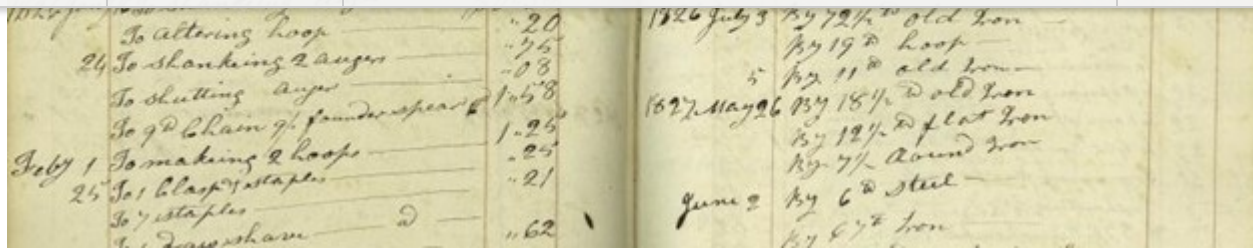 To altering hoop ,,20
24 To shanking 2 augers ,,75
To shutting auger ,,08
To 9 lb Chain 1,,58
Feby 1 To making 2 hoops 1,,25
25 To 1 Clasp & staples ,,25
To 7 staples ,,21
To 1 drawshave ,,62
1826 July 3 By 72½ lb old Iron
By 19 lb hoop
5 By 11 lb old Iron
1827 May 26 By 18½ lb old Iron
By 12½ lb flat Iron
By 7½ Round Iron
June 2 By 6 lb Steel
By lb Iron